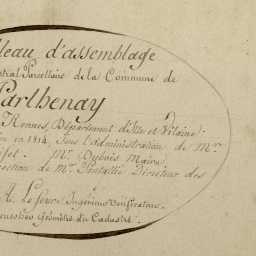 leau d'assemblage
Parcellaire de la Commune de
Parthenay
Rennes, Département d'Ille et Vilaine.
en 1814, Sous l'administration de Mr.
Mr. Dubois Maire
ection de Mr. Directeur des
A. Ingénieur Vérificateur
Géomètre du Cadastre.